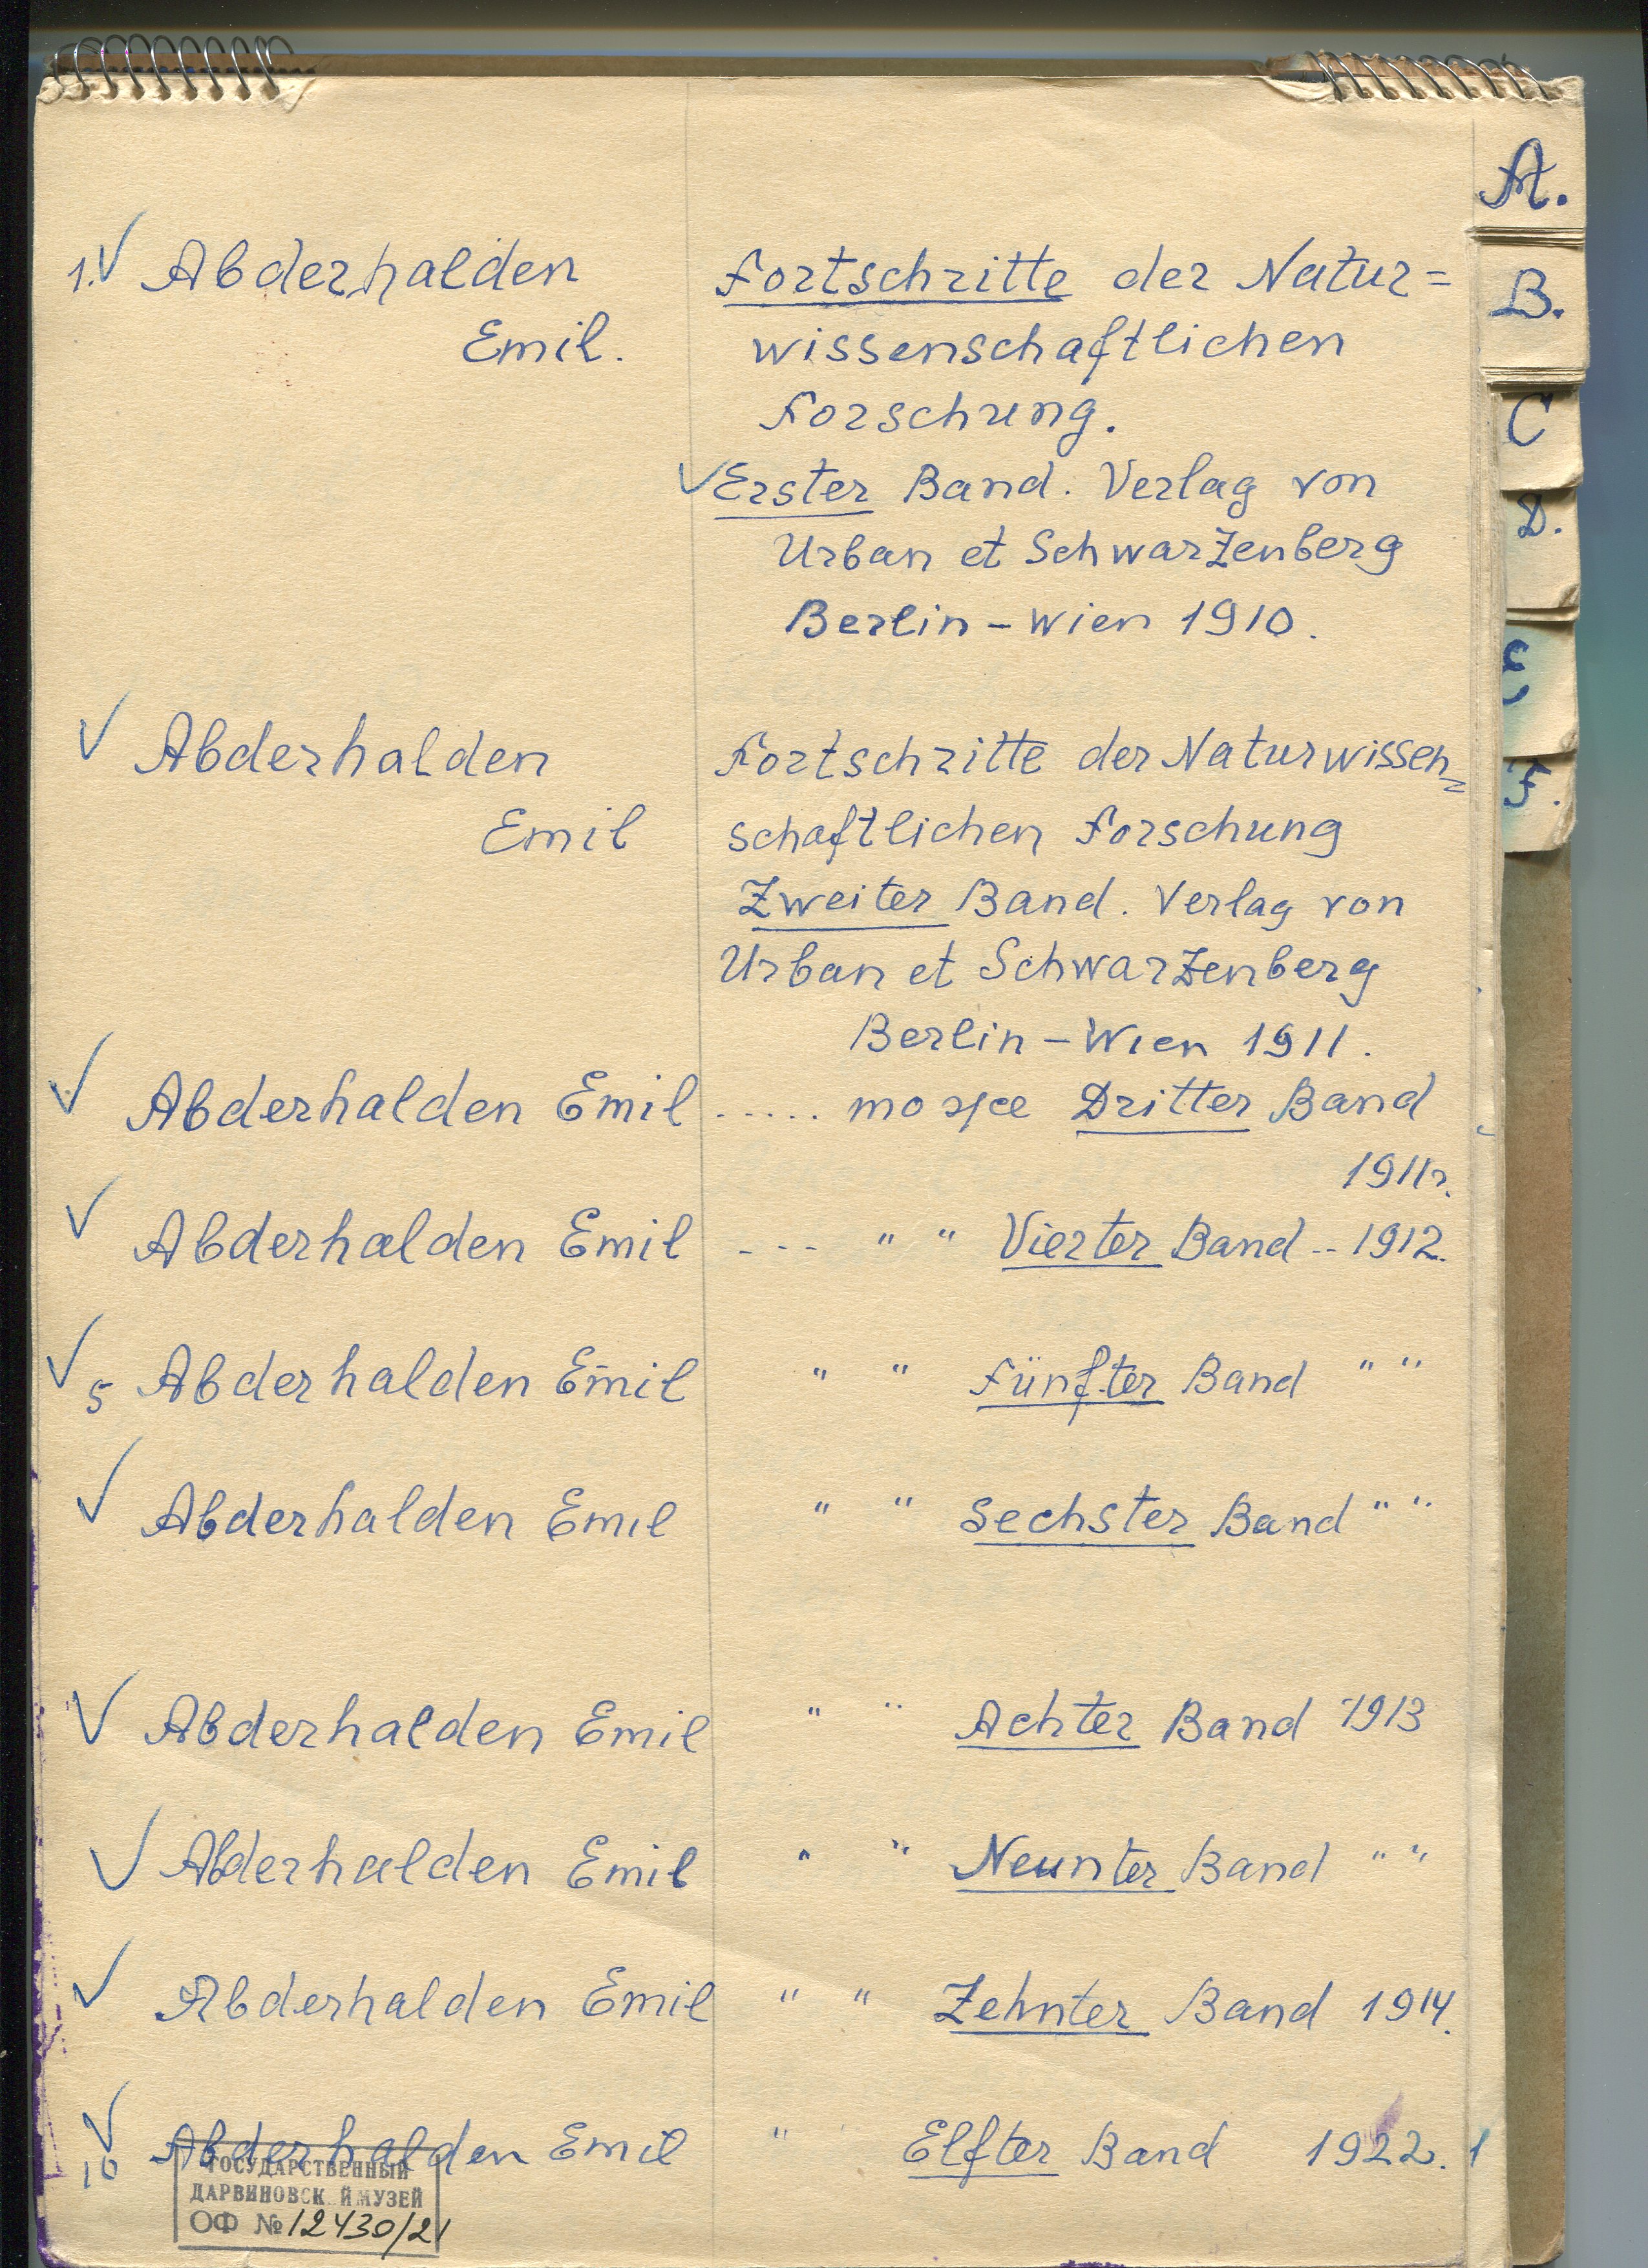 A.
B.
C
D.
E
F.
1. ✓ Abderhalden
Emil.
Fortschritte der Natur=
wissenschaftlichen
Forschung.
✓ Erster Band. Verlag von
Urban et Schwarzenberg
Berlin – Wien 1910.
✓ Abderhalden
Emil
Fortschritte der Naturwissen=
schaftlichen Forschung
Zweiter Band. Verlag von
Urban et Schwarzenberg
Berlin – Wien 1911.
✓ Abderhalden Emil ..... тоже Dritter Band
1911г.
✓ Abderhalden Emil --- " " Vierter Band -- 1912.
✓ 5 Abderhalden Emil " " Fünfter Band " "
✓ Abderhalden Emil " " Sechster Band " "
✓ Abderhalden Emil " " Achter Band 1913
✓ Abderhalden Emil " " Neunter Band " "
✓ Abderhalden Emil " " Zehnter Band 1914.
✓ 10 Abderhalden Emil " Elfter Band 1922. 1
ГОСУДАРСТВЕННЫЙ
ДАРВИНОВСК Й МУЗЕЙ
ОФ № 12430/21